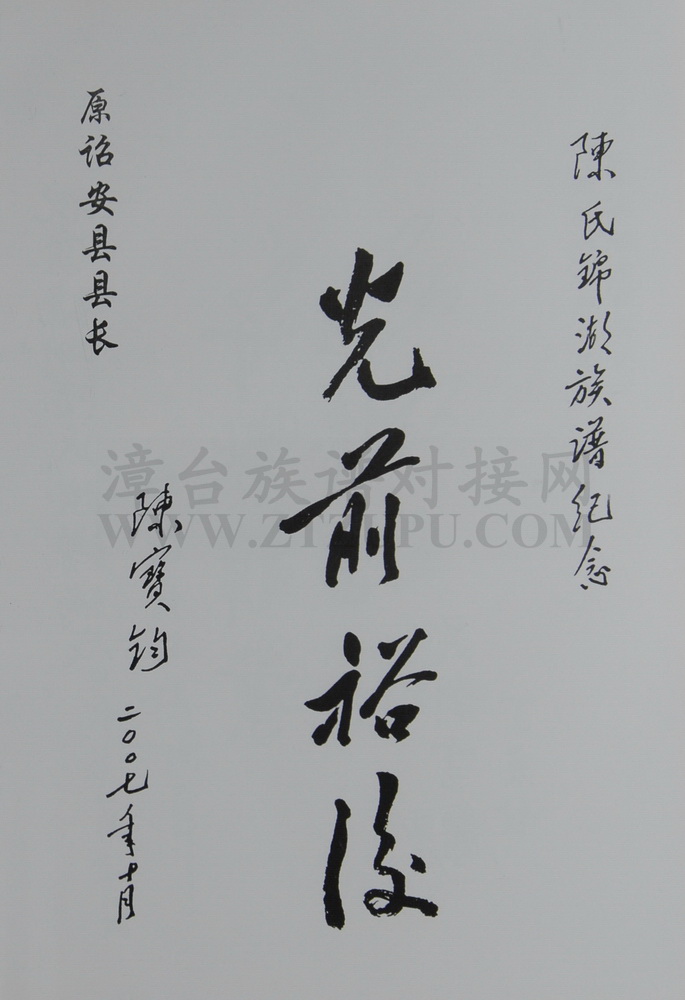 陳氏錦湖族谱纪念
光前裕後
原诏安县县长
陳寶鈞
二〇〇七年十月
漳台族谱对接网
WWW.ZTZUPU.COM